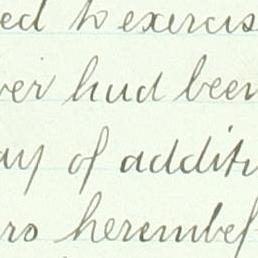 ed to exercis
ver had been
ay of additi
ro herembef